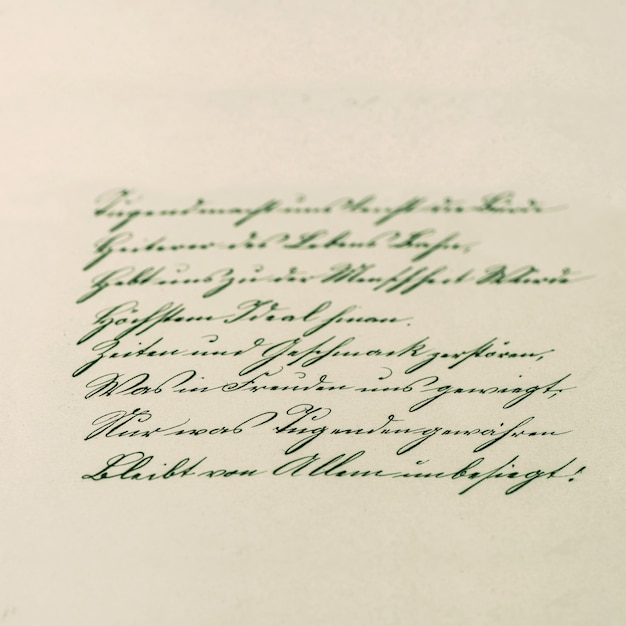 Tugend macht uns leicht die Bürde
Heiterer des Lebens Bahn,
Hebt uns zu der Menschheit Würde
Höchstem Ideal hinan.
Zeiten und Geschmack zerstören,
Was in Freuden uns gewiegt,
Nur was Tugenden gewähren
Bleibt von Allem unbesiegt!